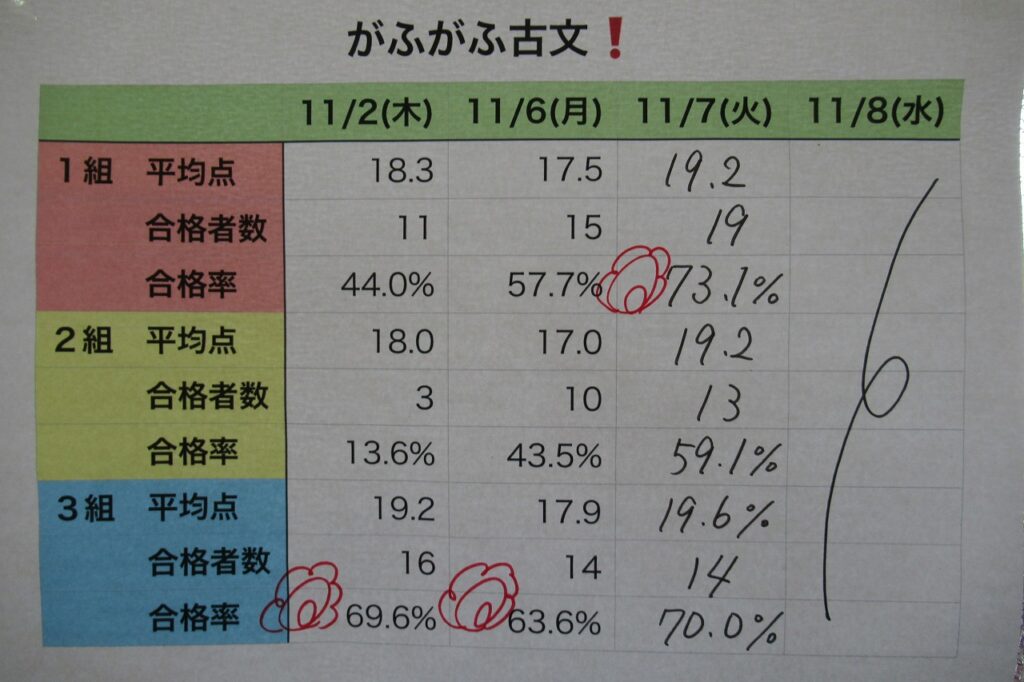 がふがふ古文❗
11/2(木) 11/6(月) 11/7(火) 11/8(水)
1組 平均点 18.3 17.5 19.2
合格者数 11 15 19
合格率 44.0% 57.7% 73.1%
2組 平均点 18.0 17.0 19.2
合格者数 3 10 13
合格率 13.6% 43.5% 59.1%
3組 平均点 19.2 17.9 19.6%
合格者数 16 14 14
合格率 69.6% 63.6% 70.0%